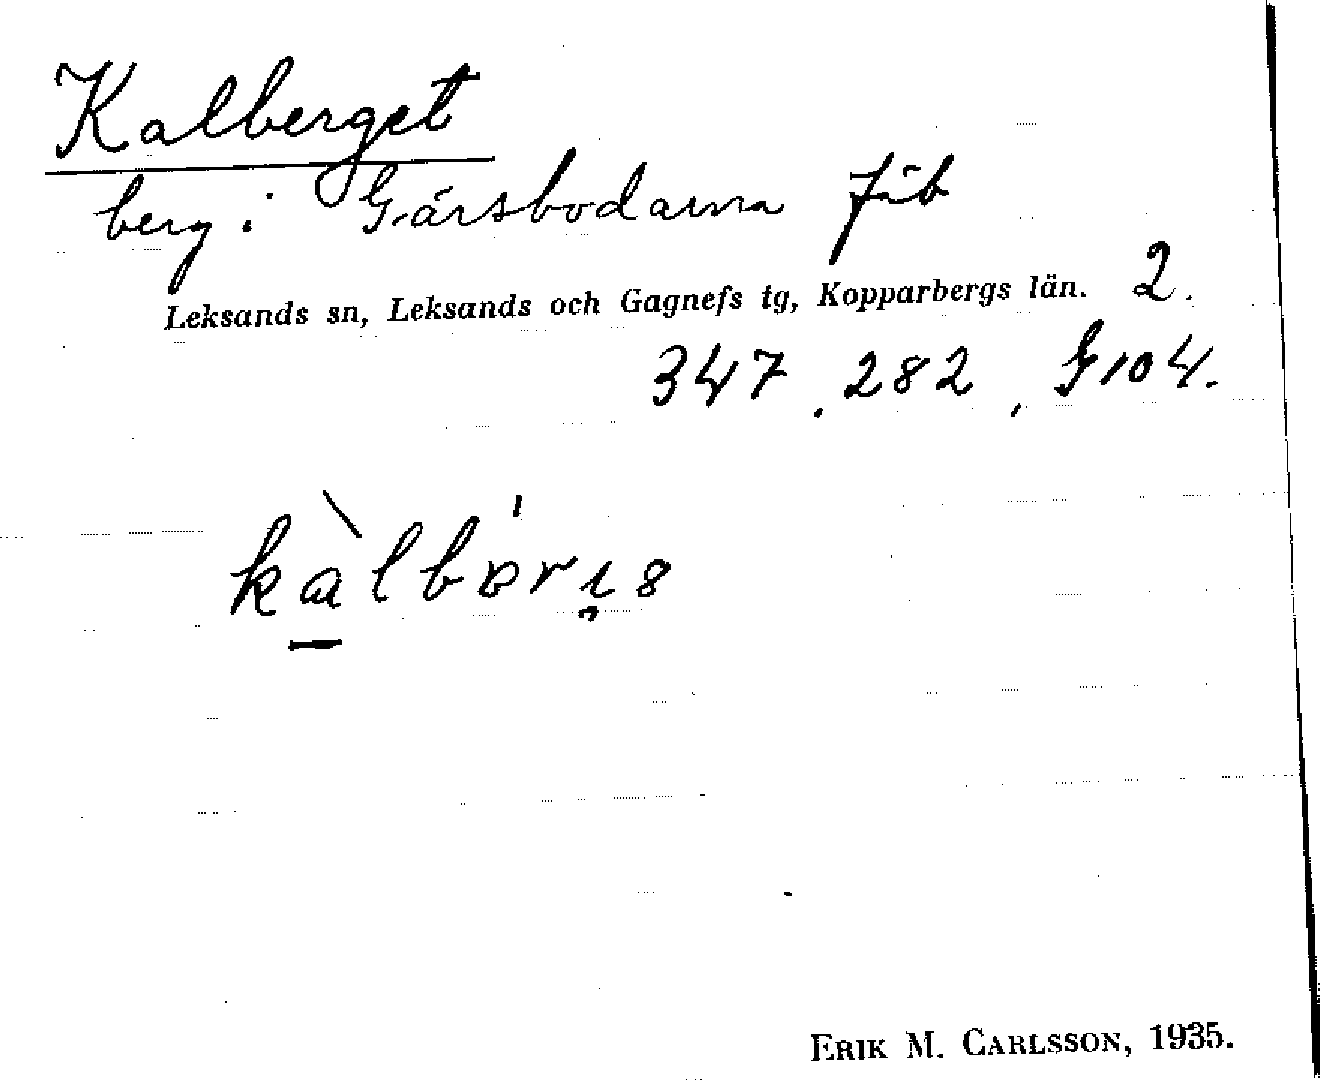 Kalberget
berg i Gärsbodarna fäb
Leksands sn, Leksands och Gagnefs tg, Kopparbergs län. 2.
347, 282, G104.
ERIK M. CARLSSON, 1935.